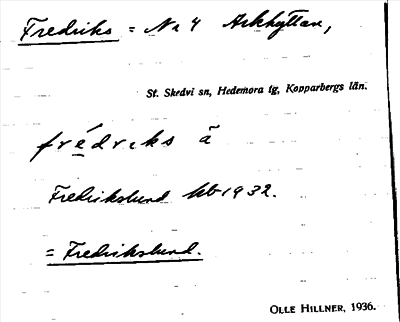 Fredriks = No 4 Arkhyttan,
St. Skedvi sn, Hedemora tg, Kopparbergs län.
frédrɛks ā
Fredrikslund kb 1932.
= Fredrikslund.
OLLE HILLNER, 1936.